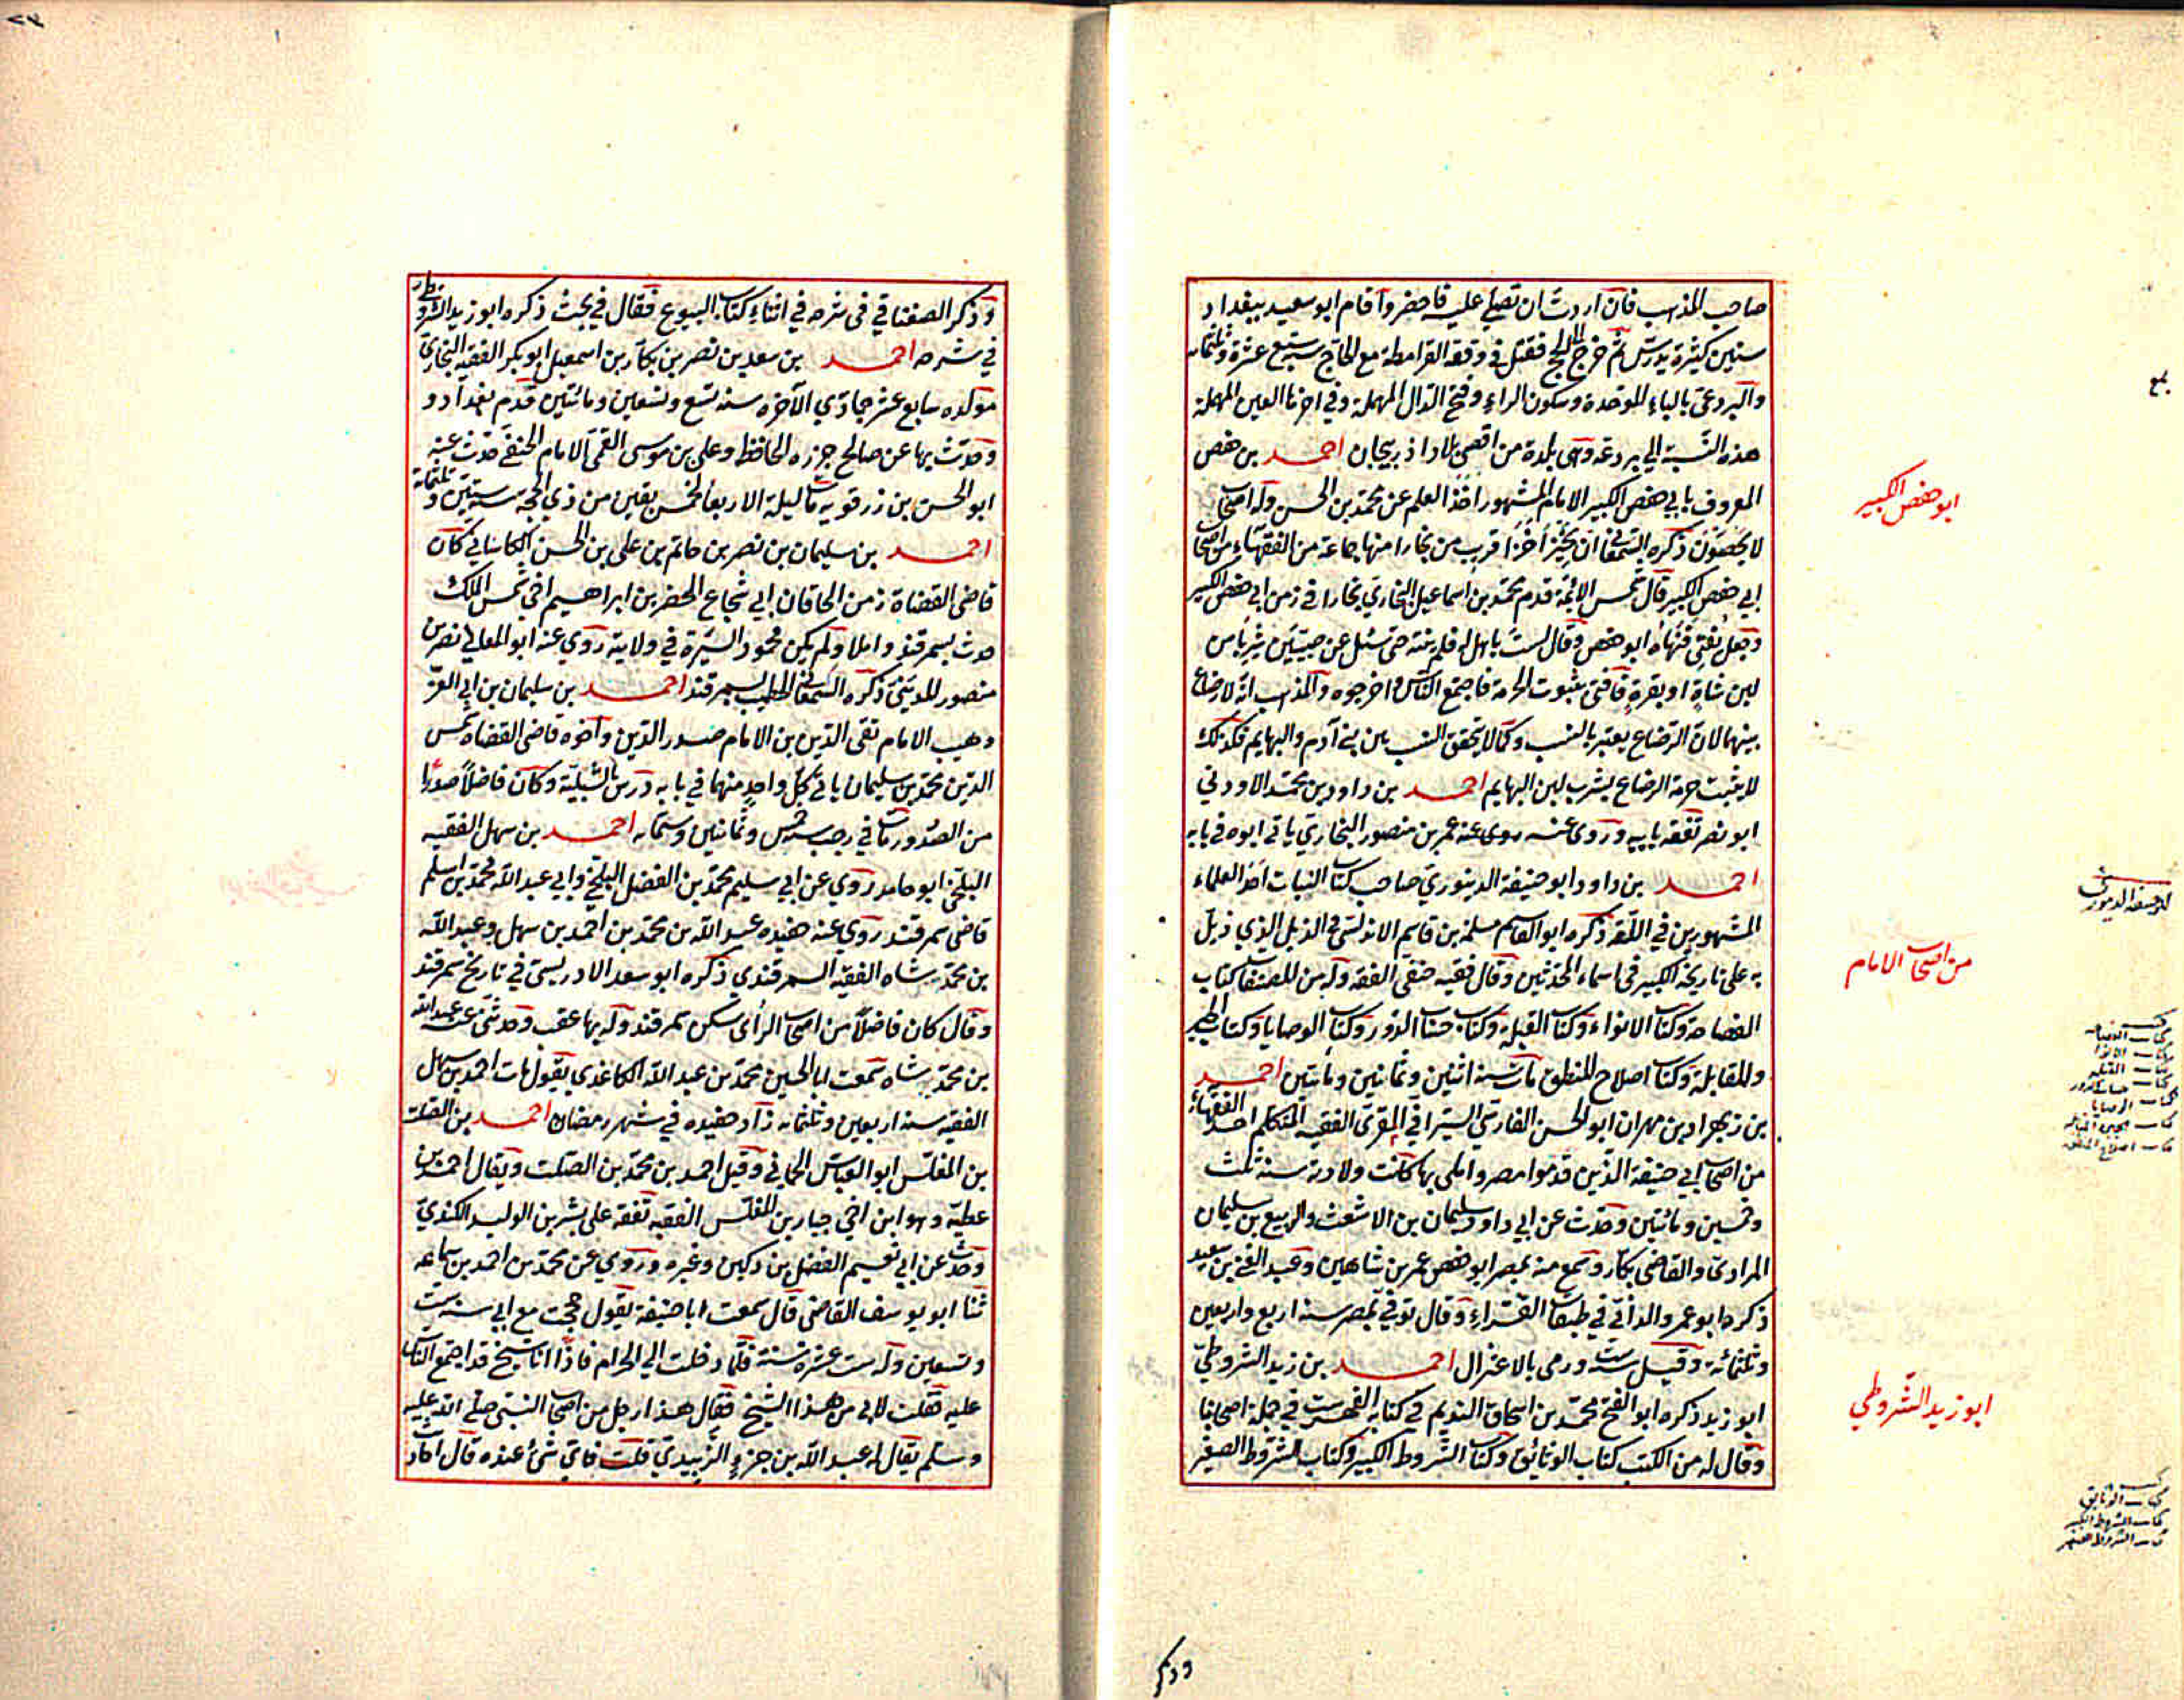 صاحب المذهب فان اردت ان تصلي عليه فاحضر واقام ابو سعيد ببغداد
سنين كثيرة يدرس ثم خرج الى الحج فقتل في وقعة القرامطة مع الحاج سنة سبع عشرة وثلثمائه
والبردعى بالباء الموحدة وسكون الراء وفتح الدال المهملة وفي اخرها العين المهملة
هذه النسبة الي بردعة وهى بلدة من اقصى بلاد اذربيجان احمد بن حفص
المعروف بابي حفص الكبير الامام المشهور اخذ العلم عن محمد بن الحسن وله اصحاب
لا يحصون ذكره السمعاني ان بخيزاخزا قرب من بخارا منها جماعة من الفقهاء من اصحاب
ابي حفص الكبير قال شمس الائمة قدم محمد بن اسماعيل البخاري بخارا في زمن ابي حفص الكبير
وجعل يفتي فنهاه ابو حفص وقال لست باهل له فلم ينته حتى سئل عن صبيين شربا من
لبن شاة او بقرة فافتى بثبوت الحرمة فاجتمع الناس واخرجوه والمذهب انه لا رضاع
بينهما لان الرضاع يعتبر بالنسب وكما لا يتحقق النسب بين بني آدم والبهايم فكذلك
لا يثبت حرمة الرضاع بشرب لبن البهايم احمد بن داود بن محمد الاودني
ابو نصر تفقه بابيه وروى عنه روى عنه عمر بن منصور البخاري ياتي ابوه في بابه
احمد بن داود ابو حنيفة الدينوري صاحب كتاب النبات احد العلماء
المشهورين في اللغة ذكره ابو القاسم مسلمة بن قاسم الاندلسي في الذيل الذي ذيل
به على تاريخه الكبير في اسماء المحدثين وقال فقيه حنفى الفقه وله من المصنفات كتاب
الفصاحة وكتاب الانواء وكتاب القبلة وكتاب حساب الدور وكتاب الوصايا وكتاب الجبر
والمقابلة وكتاب اصلاح المنطق مات سنة اثنين وثمانين ومأتين احمد
بن زيهراد بن مهران ابو الحسن الفارسي السيرافي المقرى الفقيه المتكلم احد الفقهاء
من اصحاب ابي حنيفة الذين قدموا مصر واملى بها كانت ولادته سنة ثلث
وخمسين ومائتين وحدث عن ابي داود سليمان بن الاشعث والربيع بن سليمان
المرادى والقاضى بكار وسمع منه بمصر ابو حفص عمر بن شاهين وعبد الغني بن سعيد
ذكره ابو عمرو الداني في طبقات القراء وقال توفي بمصر سنة اربع واربعين
وثلثمائة وقيل ست ورمى بالاعتزال احمد بن زيد الشروطي
ابو زيد ذكره ابو الفتح محمد بن اسحاق النديم في كتابه الفهرست في جملة اصحابنا
وقال له من الكتب كتاب الوثائق وكتاب الشروط الكبير وكتاب الشروط الصغير
ابو حفص الكبير
ابو حنيفة الدينوري
من اصحاب الامام
كتاب الانوا
كتاب القبله
كتاب حساب الدور
كتاب الوصايا
كتاب اصلاح المنطق
ابو زيد الشروطي
كتاب الوثايق
كتاب الشروط الكبير
كتاب الشروط الصغير
وذكر
وذكر الصغناقي في شرحه في اثناء كتاب البيوع فقال في بحث ذكره ابو زيد الشروطي
في شرحه احمد بن سعد بن نصر بن بكار بن اسمعيل ابو بكر الفقيه البخاري
مولده سابع عشر جمادي الآخره سنة تسع وتسعين ومائتين قدم بغداد و
وحدث بها عن صالح جزره الحافظ وعلي بن موسى القمى الامام الحنفى حدث عنه
ابو الحسن بن زرقويه مات ليلة الاربعا لخمس بقين من ذي الحجة سنة ستين وثلثمائه
احمد بن سليمان بن نصر بن حاتم بن على بن الحسن الكاساني كان
قاضى القضاة زمن الخاقان ابي شجاع الخضر بن ابراهيم اخي شمس الملك
حدث بسمرقند واملا ولم يكن محمود السيرة في ولايته روي عنه ابو المعالي نصر بن
منصور المديني ذكره السمعاني الخطيب بسمرقند احمد بن سليمان بن ابي العز
وهيب الامام تقى الدين بن الامام صدر الدين وأخوه قاضى القضاة شمس
الدين محمد بن سليمان ياتي كل واحد منهما في بابه درس بالشبلية وكان فاضلا صدرا
من الصدور مات في رجب سنة خمس وثمانين وستمائه احمد بن سهل الفقيه
البلخى ابو حامد روي عن ابي سليم محمد بن الفضل البلخي وابي عبد الله محمد بن اسلم
قاضى سمرقند روي عنه حفيده عبد الله بن محمد بن احمد بن سهل وعبد الله
بن محمد بن شاه الفقيه السمرقندي ذكره ابو سعد الادريسى في تاريخ سمرقند
وقال كان فاضلا من اصحاب الرأى سكن سمرقند وله بها عقب وحدثنى عنه عبد الله
بن محمد بن شاه سمعت ابا الحسين محمد بن عبد الله الكاغدي يقول مات احمد بن سهل
الفقيه سنة اربعين وثلثمائه زاد حفيده في شهر رمضان احمد بن الصلت
بن المغلس ابو العباس الحماني وقيل احمد بن محمد بن الصلت ويقال احمد بن
عطية وهو ابن اخي جبار بن المغلس الفقيه تفقه على بشر بن الوليد الكندي
وحدث عن ابي نعيم الفضل بن دكين وغيره وروي عن محمد بن احمد بن سماعه
ثنا ابو يوسف القاضى قال سمعت ابا حنيفة يقول حججت مع ابي سنة ست
وتسعين وله ست عشرة سنة فلما دخلت الي الحرام فاذا انا بشيخ قد اجتمع الناس
عليه فقلت لابي من هذا الشيخ فقال هذا رجل من اصحاب النبى صلي الله عليه
وسلم يقال له عبد الله بن جزء الزبيدي قلت فاي شئ عنده قال احاديث